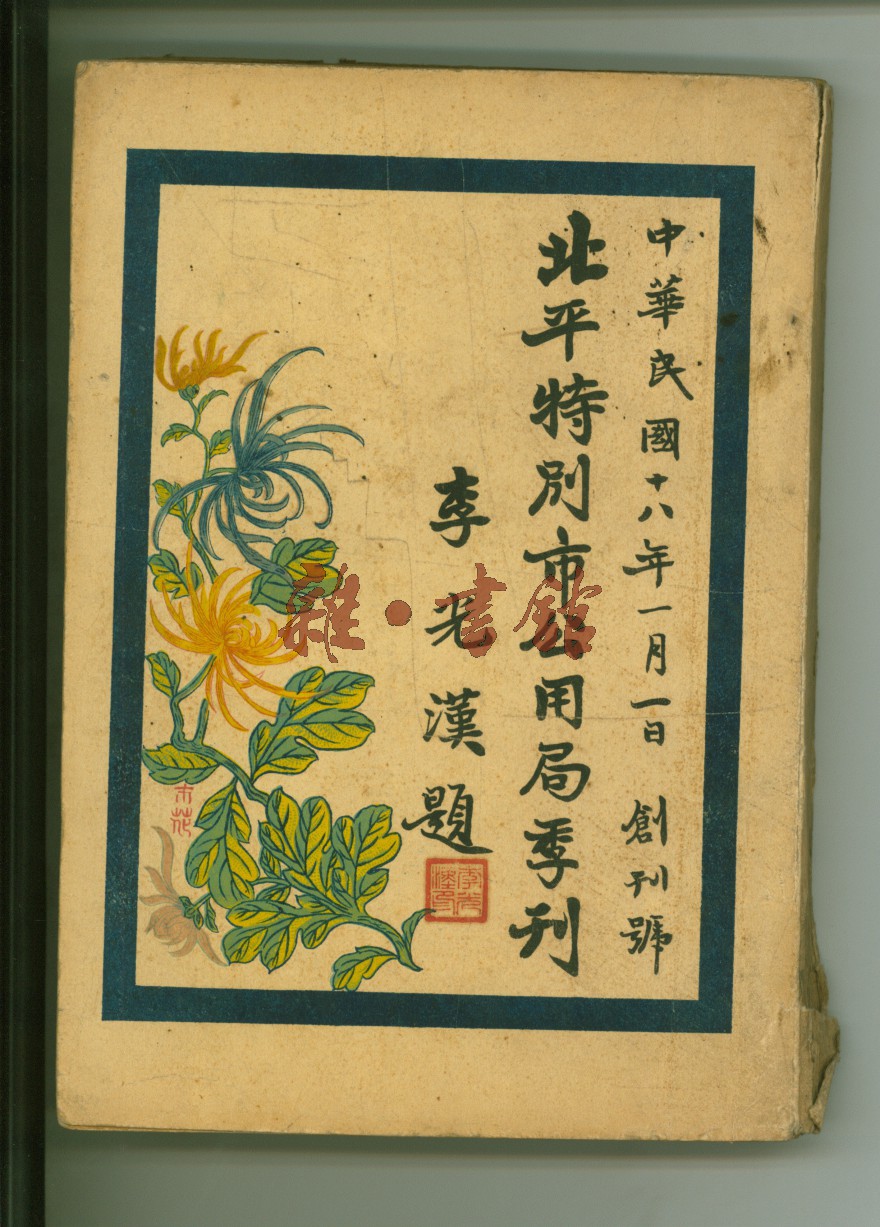 中華民國十八年一月一日 創刊號
北平特別市公用局季刊
李光漢題
市花
雜·書館